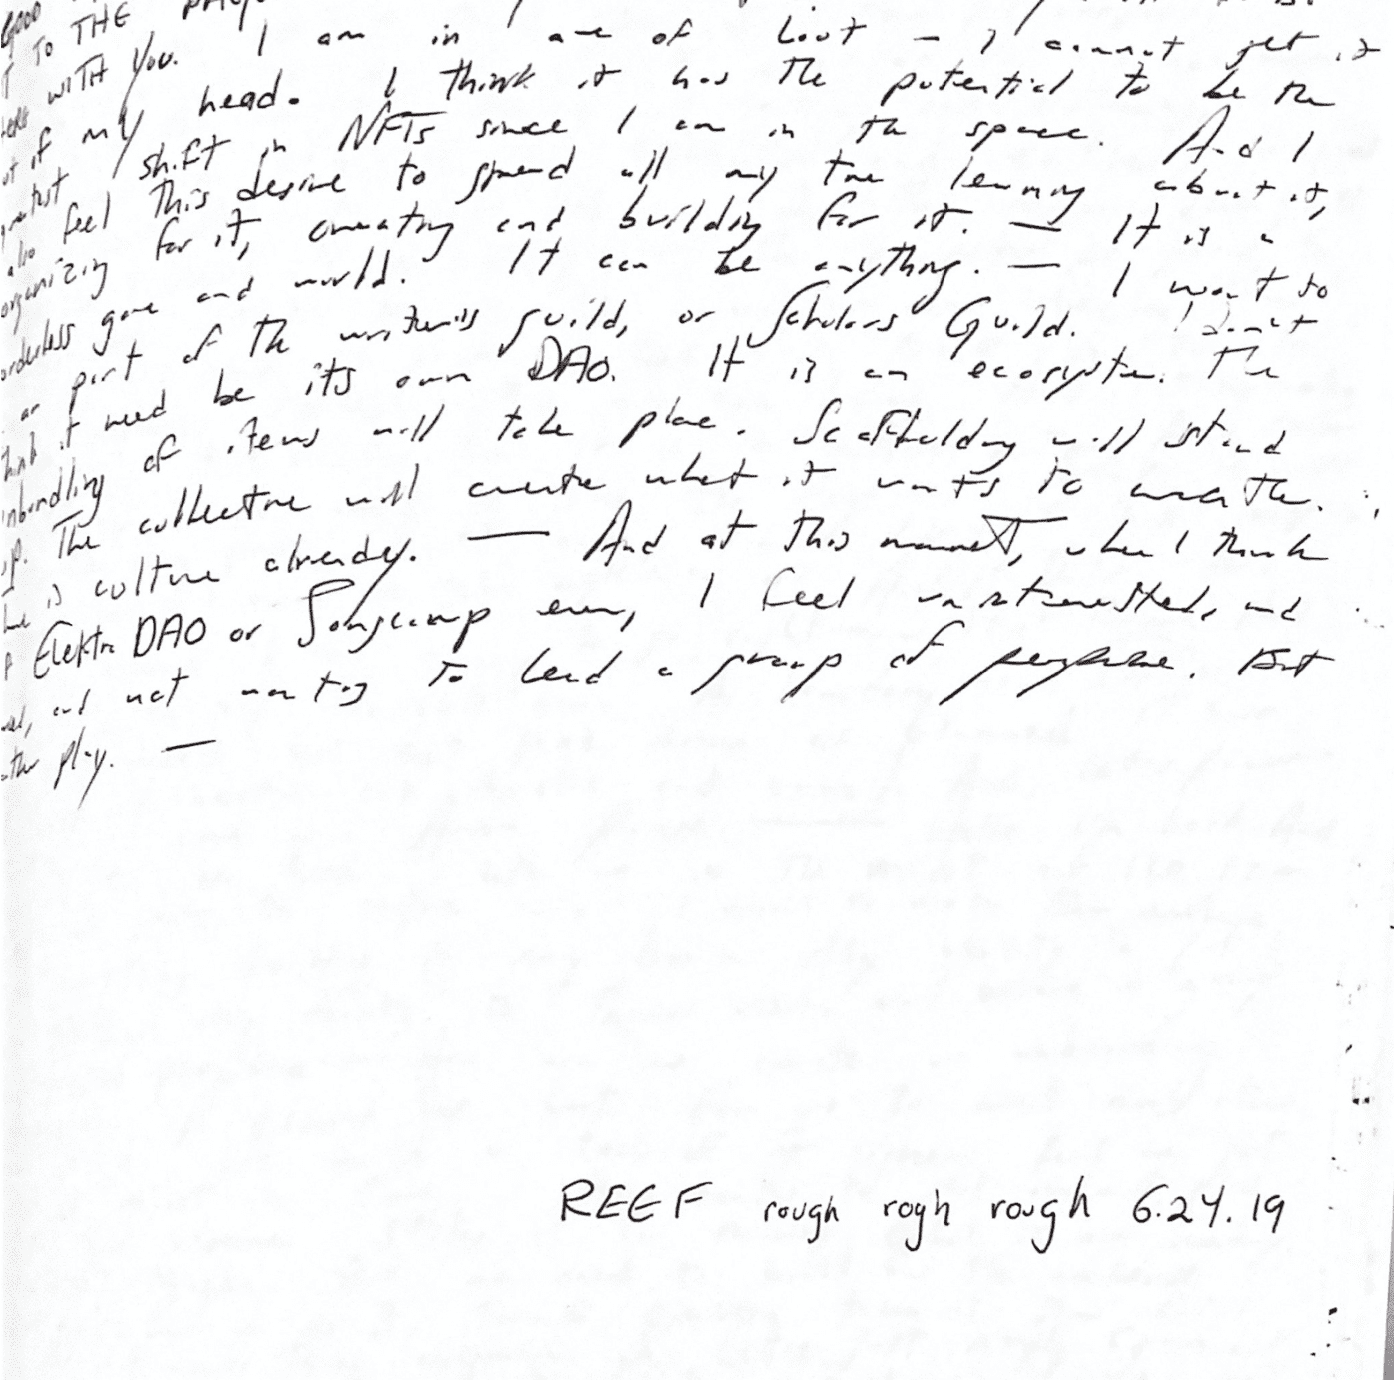 Good
T TO THE
WITH YOU. I am in awe of Loot – I cannot get it
out of my head. I think it has the potential to be the
greatest shift in NFTs since I am in the space. And I
also feel this desire to spend all my time learning about it,
organizing for it, creating and building for it. — It is a
orderless game and world. It can be anything. — I want to
be part of the writer's guild, or Scholars Guild. I don't
think it need be its own DAO. It is an ecosystem. The
unbundling of items will take place. Scaffolding will stand
up. The collective will create what it wants to create.
is culture already. — And at this moment, when I think
Elektra DAO or Songcamp even, I feel uninterested, and
and not wanting to lead a group of people. But
rather play. —
REEF rough rogh rough 6.24.19